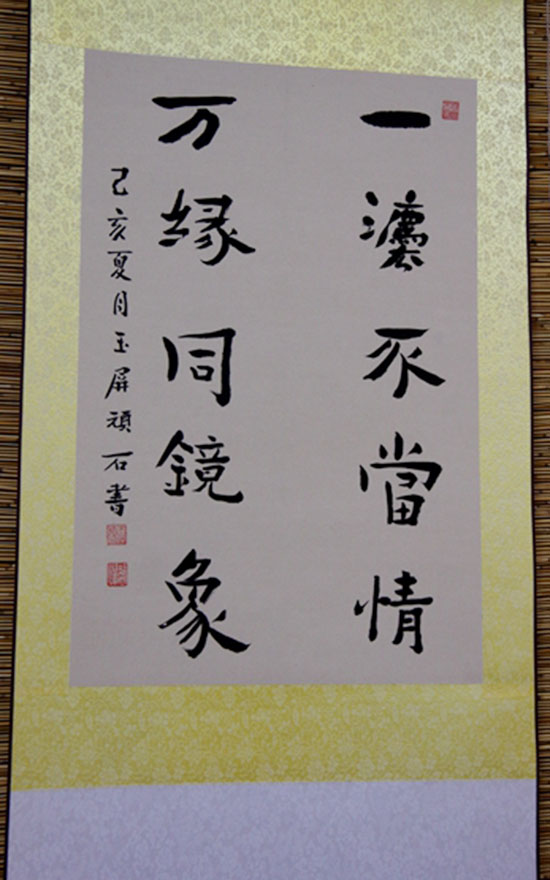 一灋不當情
万缘同鏡象
己亥夏月玉屏頑石書